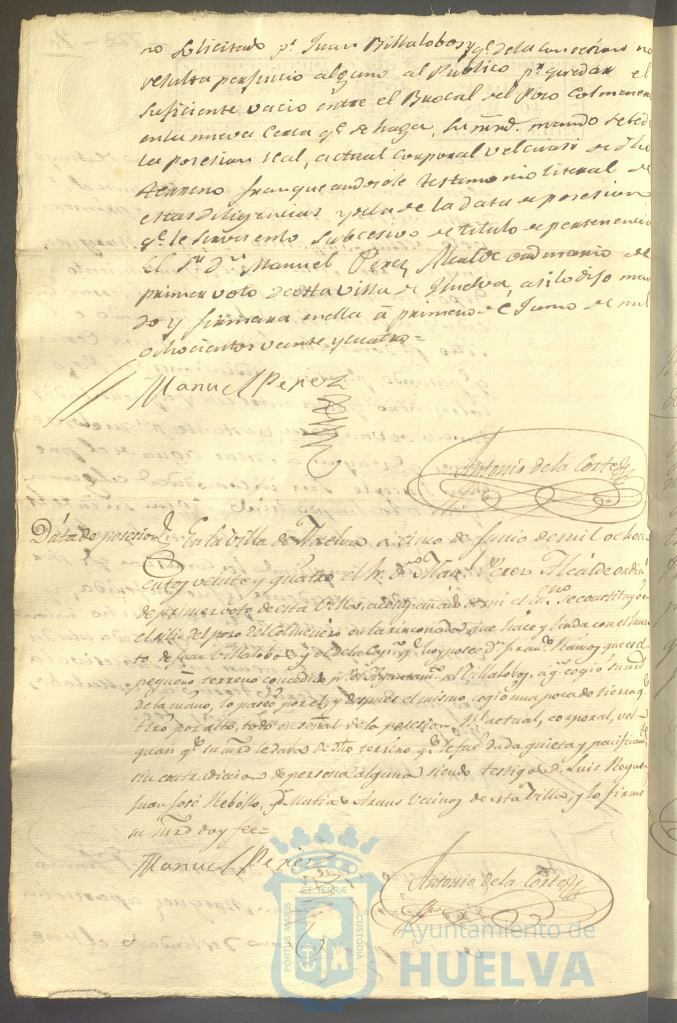 no solicitado pr. Juan Billalobos y qe. de la concesion no
resulta perjuicio alguno al Publico pr. quedar el
suficiente vacio entre el Brocal del Pozo Colmenero
en la nueva Cerca qe. se haga, su mrd. mando se le dé
la posesion real, actual corporal vel cuasi de dho.
terreno franqueandosele testimonio literal de
estas diligencias y de la data de posesion
qe. le servirá en lo subcesivo de titulo de pertenencia
el Sr. Dn. Manuel Perez Alcalde ordinario de
primer voto de esta villa de Huelva, asi lo dijo man
dó y firmara en ella á primero de Junio de mil
ochocientos veinte y cuatro=
Manuel Perez
Antonio de la Corte
Data de posesion
En la Villa de Huelva a cinco de Junio de mil ochoci
entos veinte y quatro el Sr. Dn. Manl. Perez Alcalde ordinº
de primer voto de esta Villa, acompañado de mi el se constituyó en
el sitio del pozo del Colmenero en la rinconada que hace y linda con el huer
to de Juan Villalobos y el de la qe. hoy posee Dn. Franco. Ramos que es el
pequeño terreno concedido pr. el Ayuntamto. a Villalobos, a qn. cogió su mrd.
de la mano, lo paseó por el, y despues el mismo cogió una poca de tierra q.
tiró por alto, todo en señal de la posesion Rl. actual, corporal, vel
quasi qe. su mrd. le dava de dho terreno qe. le fue dada quieta y pacificamte.
sin contradicion de persona alguna siendo testigos D. Luis
Juan José Rebollo, y Matias Vecinos de esta Villa, y lo firmó
su mrd. doy fee=
Manuel Perez
Antonio de la Corte
PORTUS MARIS
ET TERRÆ
CUSTODIA
Ayuntamiento de
HUELVA